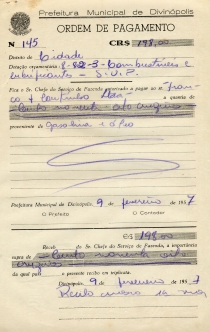 Prefeitura Municipal de Divinópolis
ORDEM DE PAGAMENTO
N 145 CR$ 198,00
Distrito de Cidade
Dotação orçamentária 8-82-3-Combustiveis e
lubrificante - S.V.P.
Fica o Sr. Chefe do Serviço de Fazenda autorizado a pagar ao sr.
a quantia de
cento noventa oito cruzeiros
proveniente de Gasolina e óleo
Prefeitura Municipal de Divinópolis, 9 fevereiro de 1957
O Prefeito O Contador
Cr$ 198,00
do Sr. Chefe do Serviço de Fazenda, a importância
supra de cento noventa oito
cruzeiros
da qual passo o presente recibo em triplicata.
Divinópolis, 9 fevereiro de 1957